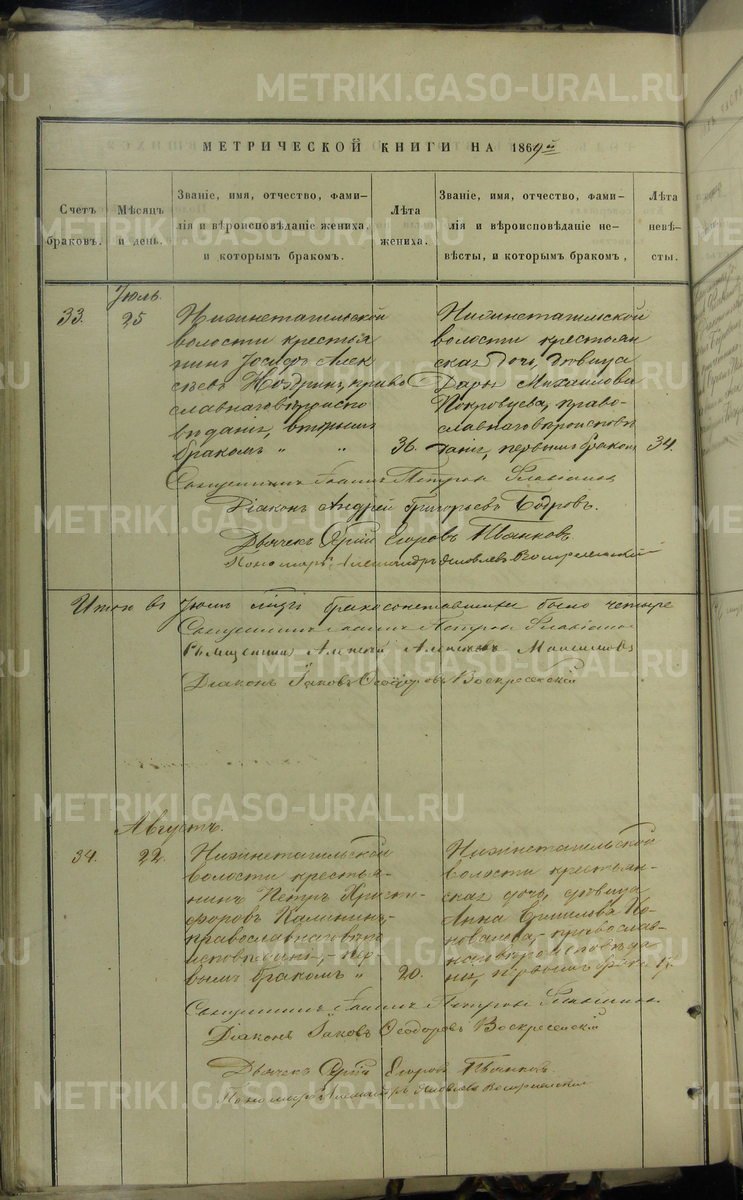 МЕТРИЧЕСКОЙ КНИГИ НА 1869й
Счетъ браковъ.
Мѣсяцъ и день.
Званіе, имя, отчество, фами-
лія и вѣроисповѣданіе жениха,
и которымъ бракомъ.
Лѣта
жениха.
Званіе, имя, отчество, фами-
лія и вѣроисповѣданіе не-
вѣсты, и которымъ бракомъ,
Лѣта
невѣ-
сты.
Іюль.
33.
25
Нижнетагильской
волости крестья
нинъ Іосифъ Алек
сѣевъ Ноздринъ, право
славнаго вѣроиспо
вѣданія, вторымъ
бракомъ „ „
36.
Нижнетагильской
волости крестьян
ская дочь, дѣвица
Дарья Михаилова
Покровцева, право-
славнаго вѣроисповѣ
данія, первымъ бракомъ
34.
Священникъ Іоаннъ Петровъ
Діаконъ Андрей Григорьевъ Бобровъ.
Дьячекъ Сергій Егоровъ Иванковъ.
Пономарь Александръ Яковлевъ
Итого въ Іюлѣ бракосочетавшихся было четыре
Священникъ Іоаннъ Петровъ
Священникъ Алексій
Діаконъ Іаковъ Ѳеодоровъ Воскресенскій
Августъ.
34.
22
Нижнетагильской
волости крестья-
нинъ Петръ Христо-
форовъ Калининъ,-
православнаго вѣро
исповѣданія,- пер
вымъ бракомъ „
20.
Нижнетагильской
волости крестьян-
ская дочь, дѣвица
Анна Ко-
новалова,- православ-
наго вѣроисповѣда
нія, первымъ бракомъ
Священникъ Іоаннъ Петровъ
Діаконъ Іаковъ Ѳеодоровъ Воскресенскій
Дьячекъ Сергій Егоровъ Иванковъ.
Пономарь Александръ Яковлевъ
METRIKI.GASO-URAL.RU